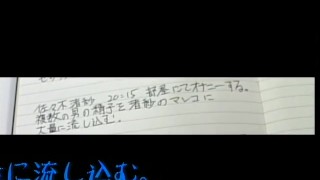 佐々木 渚紗 20:15 部屋にてオナニーする。
複数の男の精子を渚紗のマンコに
大量に流し込む。
に流し込む。